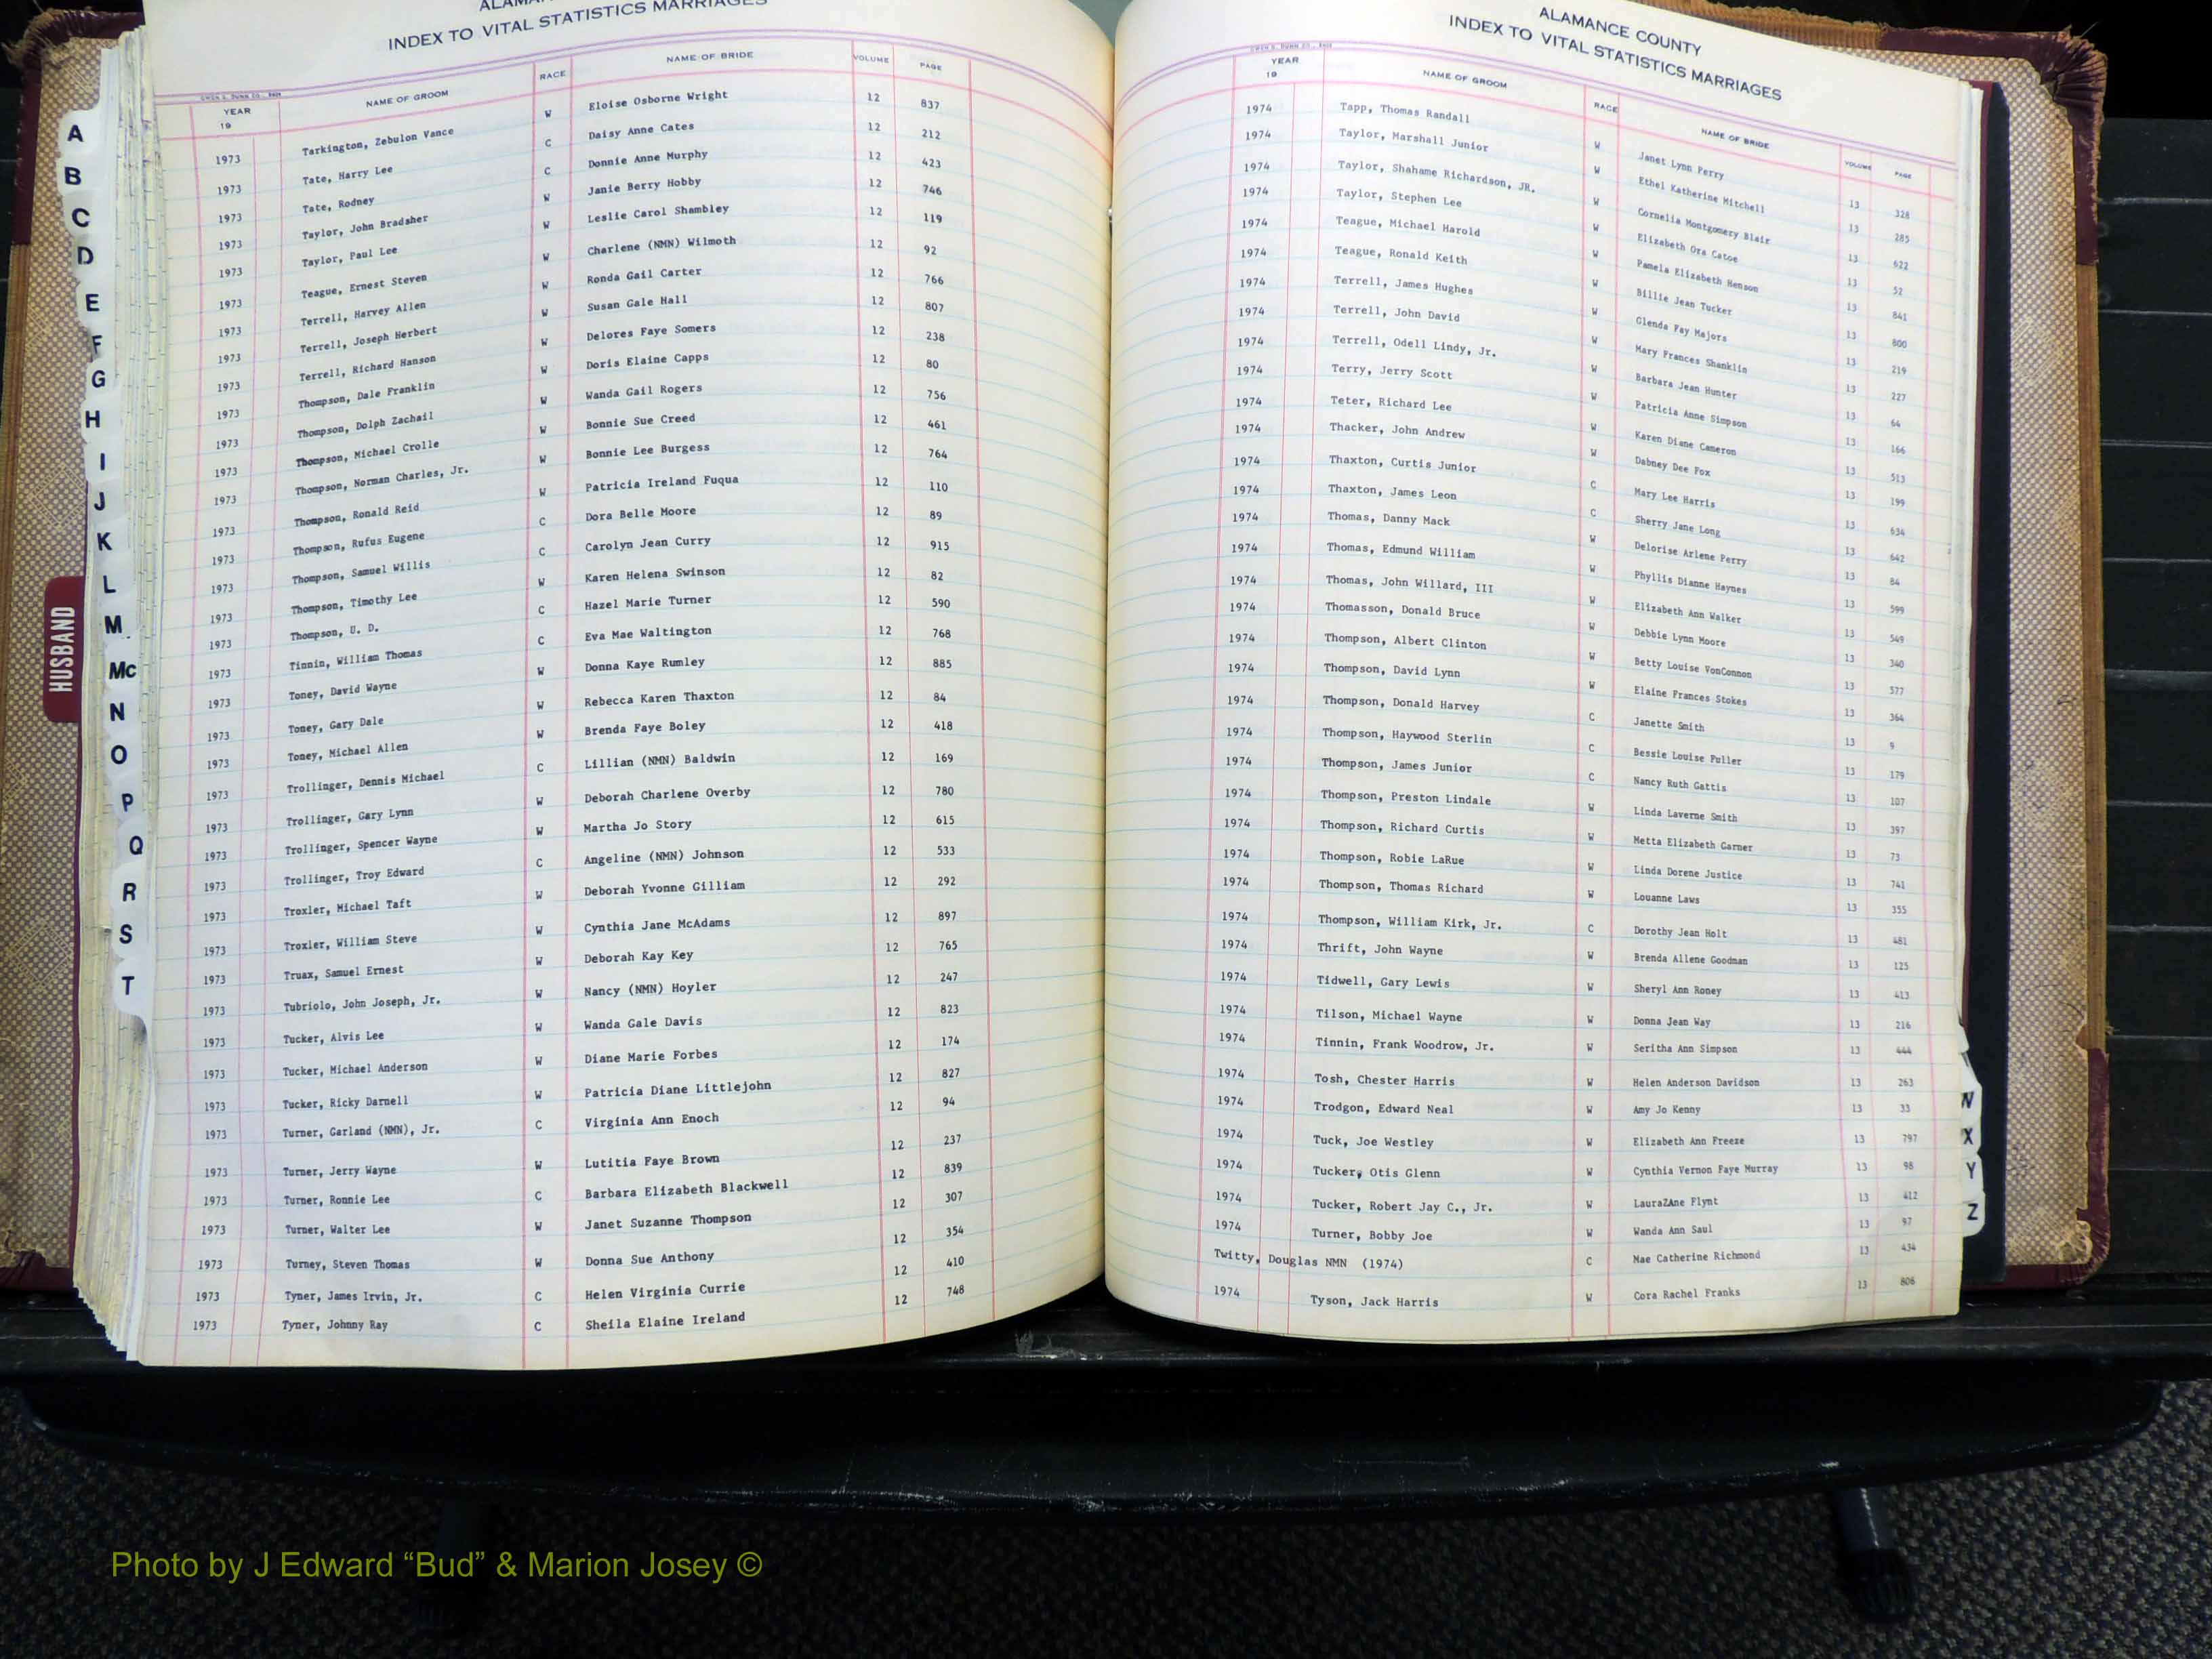 ALAMANCE COUNTY
INDEX TO VITAL STATISTICS MARRIAGES
OWEN G. DUNN CO.
YEAR 19 NAME OF GROOM RACE NAME OF BRIDE VOLUME PAGE
1973 Tarkington, Zebulon Vance W Eloise Osborne Wright 12 837
1973 Tate, Harry Lee C Daisy Anne Cates 12 212
1973 Tate, Rodney C Donnie Anne Murphy 12 423
1973 Taylor, John Bradsher W Janie Berry Hobby 12 746
1973 Taylor, Paul Lee W Leslie Carol Shambley 12 119
1973 Teague, Ernest Steven W Charlene (NMN) Wilmoth 12 92
1973 Terrell, Harvey Allen W Ronda Gail Carter 12 766
1973 Terrell, Joseph Herbert W Susan Gale Hall 12 807
1973 Terrell, Richard Hanson W Delores Faye Somers 12 238
1973 Thompson, Dale Franklin W Doris Elaine Capps 12 80
1973 Thompson, Dolph Zachail W Wanda Gail Rogers 12 756
1973 Thompson, Michael Crolle W Bonnie Sue Creed 12 461
1973 Thompson, Norman Charles, Jr. W Bonnie Lee Burgess 12 764
1973 Thompson, Ronald Reid W Patricia Ireland Fuqua 12 110
1973 Thompson, Rufus Eugene C Dora Belle Moore 12 89
1973 Thompson, Samuel Willis C Carolyn Jean Curry 12 915
1973 Thompson, Timothy Lee W Karen Helena Swinson 12 82
1973 Thompson, U. D. C Hazel Marie Turner 12 590
1973 Tinnin, William Thomas C Eva Mae Waltington 12 768
1973 Toney, David Wayne W Donna Kaye Rumley 12 885
1973 Toney, Gary Dale W Rebecca Karen Thaxton 12 84
1973 Toney, Michael Allen W Brenda Faye Boley 12 418
1973 Trollinger, Dennis Michael C Lillian (NMN) Baldwin 12 169
1973 Trollinger, Gary Lynn W Deborah Charlene Overby 12 780
1973 Trollinger, Spencer Wayne W Martha Jo Story 12 615
1973 Trollinger, Troy Edward C Angeline (NMN) Johnson 12 533
1973 Troxler, Michael Taft W Deborah Yvonne Gilliam 12 292
1973 Troxler, William Steve W Cynthia Jane McAdams 12 897
1973 Truax, Samuel Ernest W Deborah Kay Key 12 765
1973 Tubriolo, John Joseph, Jr. W Nancy (NMN) Hoyler 12 247
1973 Tucker, Alvis Lee W Wanda Gale Davis 12 823
1973 Tucker, Michael Anderson W Diane Marie Forbes 12 174
1973 Tucker, Ricky Darnell W Patricia Diane Littlejohn 12 827
1973 Turner, Garland (NMN), Jr. C Virginia Ann Enoch 12 94
1973 Turner, Jerry Wayne W Lutitia Faye Brown 12 237
1973 Turner, Ronnie Lee C Barbara Elizabeth Blackwell 12 839
1973 Turner, Walter Lee W Janet Suzanne Thompson 12 307
1973 Turney, Steven Thomas W Donna Sue Anthony 12 354
1973 Tyner, James Irvin, Jr. C Helen Virginia Currie 12 410
1973 Tyner, Johnny Ray C Sheila Elaine Ireland 12 748
ALAMANCE COUNTY
INDEX TO VITAL STATISTICS MARRIAGES
OWEN G. DUNN CO.
YEAR 19 NAME OF GROOM RACE NAME OF BRIDE VOLUME PAGE
1974 Tapp, Thomas Randall W Janet Lynn Perry 13 328
1974 Taylor, Marshall Junior W Ethel Katherine Mitchell 13 285
1974 Taylor, Shahame Richardson, JR. W Cornelia Montgomery Blair 13 622
1974 Taylor, Stephen Lee W Elizabeth Ora Catoe 13 52
1974 Teague, Michael Harold W Pamela Elizabeth Henson 13 841
1974 Teague, Ronald Keith W Billie Jean Tucker 13 800
1974 Terrell, James Hughes W Glenda Fay Majors 13 219
1974 Terrell, John David W Mary Frances Shanklin 13 227
1974 Terrell, Odell Lindy, Jr. W Barbara Jean Hunter 13 64
1974 Terry, Jerry Scott W Patricia Anne Simpson 13 166
1974 Teter, Richard Lee W Karen Diane Cameron 13 513
1974 Thacker, John Andrew W Dabney Dee Fox 13 199
1974 Thaxton, Curtis Junior C Mary Lee Harris 13 634
1974 Thaxton, James Leon C Sherry Jane Long 13 642
1974 Thomas, Danny Mack W Delorise Arlene Perry 13 84
1974 Thomas, Edmund William W Phyllis Dianne Haynes 13 599
1974 Thomas, John Willard, III W Elizabeth Ann Walker 13 549
1974 Thomasson, Donald Bruce W Debbie Lynn Moore 13 340
1974 Thompson, Albert Clinton W Betty Louise VonConnon 13 577
1974 Thompson, David Lynn W Elaine Frances Stokes 13 364
1974 Thompson, Donald Harvey C Janette Smith 13 9
1974 Thompson, Haywood Sterlin C Bessie Louise Fuller 13 179
1974 Thompson, James Junior C Nancy Ruth Gattis 13 107
1974 Thompson, Preston Lindale W Linda Laverne Smith 13 397
1974 Thompson, Richard Curtis W Metta Elizabeth Garner 13 73
1974 Thompson, Robie LaRue W Linda Dorene Justice 13 741
1974 Thompson, Thomas Richard W Louanne Laws 13 355
1974 Thompson, William Kirk, Jr. C Dorothy Jean Holt 13 481
1974 Thrift, John Wayne W Brenda Allene Goodman 13 125
1974 Tidwell, Gary Lewis W Sheryl Ann Roney 13 413
1974 Tilson, Michael Wayne W Donna Jean Way 13 216
1974 Tinnin, Frank Woodrow, Jr. W Seritha Ann Simpson 13 444
1974 Tosh, Chester Harris W Helen Anderson Davidson 13 263
1974 Trodgon, Edward Neal W Amy Jo Kenny 13 33
1974 Tuck, Joe Westley W Elizabeth Ann Freeze 13 797
1974 Tucker, Otis Glenn W Cynthia Vernon Faye Murray 13 98
1974 Tucker, Robert Jay C., Jr. W LauraZAne Flynt 13 412
1974 Turner, Bobby Joe W Wanda Ann Saul 13 97
Twitty, Douglas NMN (1974) C Mae Catherine Richmond 13 434
1974 Tyson, Jack Harris W Cora Rachel Franks 13 806
A
B
C
D
E
F
G
H
I
J
K
L
M
Mc
N
O
P
Q
R
S
T
W
X
Y
Z
HUSBAND
Photo by J Edward “Bud” & Marion Josey ©